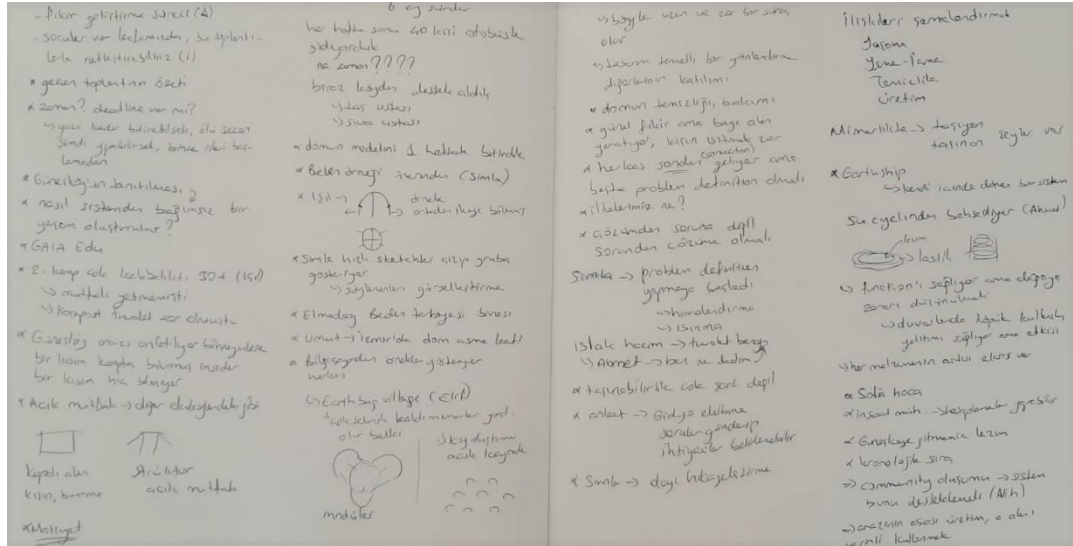 - fikir geliştirme süreci (A)
- sorular var kafamızda, bu toplantı-
larla netleştirebiliriz (i)
* geçen toplantının özeti
* zaman? deadline var mı?
↳ yaza kadar bitirebilsek, ölü sezon
şimdi yapabilirsek, bahçe işleri baş-
lamadan
* Güneşköy'ün tanıtılması
* nasıl sistemden bağımsız bir
yaşam oluşturulur?
* GAIA Edu
* 2. kamp çok kalabalıktı, 30+ (Işıl)
↳ mutfak yetmemişti
↳ kompost tuvalet zor olmuştu
* Güneşköy arazi anlatılıyor bilmeyenlere
bir kısım kampta bulunmuş insanlar
bir kısım hiç bilmiyor
* Açık mutfak → diğer ekoköylerdeki gibi
kapalı alan
kışın, barınma
strüktür
açık mutfak
* Maliyet
6 ay sürdü
her hafta sonu 40 kişi otobüsle
gidiyorduk
ne zaman????
biraz köyden destek aldık
↳ taş ustası
↳ sıva ustası
* domun modelini 1 haftada bitirdik
* Beden örneği üzerinden (Simla)
* Işıl →
örnek
ortadan ikiye bölünmüş
* Simla hızlı sketchler çizip gruba
gösteriyor
↳ söylenenleri görselleştirme
* Elmadağ Beden terbiyesi binası
* Umut → İzmir'de dom asma kat!
* Bilgisayardan örnekler gösteriyor
herkes
↳ Earthbag village (Elif)
olur belki
modüller
açık kaynak
↳ böyle uzun ve zor bir süreç
olur
↳ tasarım temelli bir yönlendirme
diğerlerinin katılımı
* domun temizliği, bakımı
* güzel fikir ama başa alan
yaratıyor, kışın ısıtmak zor
* herkes sondan (sonuçtan) geliyor ama
başta problem definition olmalı
* ilkelerimiz ne?
* çözümden soruna değil
sorundan çözüme olmalı
Simla → problem definition
yapmaya başladı
↳ havalandırma
↳ ısınma
ıslak hacim → tuvalet banyo
↳ Ahmet → ben ne dedim
* taşınabilirlik çok şart değil
* anket → Gidya ekibine
sorular gönderip
ihtiyaçlar belirlenebilir
* Simla → dayı hikayeleştirme
İlişkileri şemalandırmak
Yaşama
Yeme-İçme
Temizlik
Üretim
Mimarlıkta → taşıyan
taşınan şeyler var
* Earthship
↳ kendi içinde dönen bir sistem
Su cyclından bahsediyor (Ahmet)
kum
↳ lastik
↳ function'ı sağlıyor ama doğaya
zararı düşünülmeli
↳ duvarlarda köpük kullanılmış
yalıtımı sağlıyor ama etkisi
↳ her malzemenin artısı eksisi var
* Solà hoca
* inşaat müh. → hesaplamaları yapabilir
* Güneşköye gitmemiz lazım
* kronolojik sıra
⇒ community oluşumu → sistem
bunu desteklemeli (Alih)
→ arazinin esası üretim, o alanı
verimli kullanmak